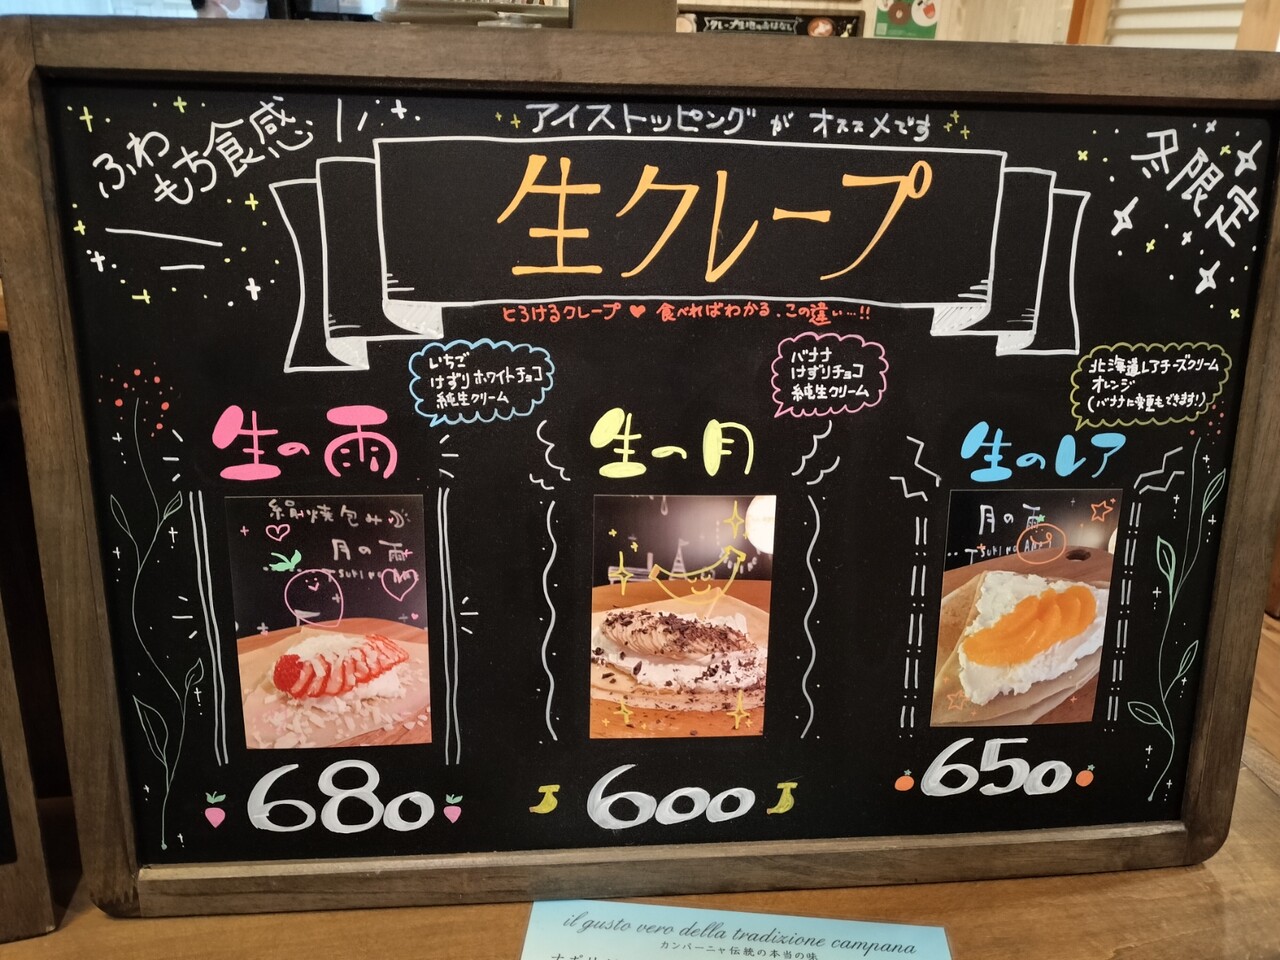 クレープ生地のおはなし
アイストッピングが オススメです
ふわ
もち食感
冬限定
生クレープ
とろけるクレープ ♥ 食べればわかる、この違い…!!
いちご
けずりホワイトチョコ
純生クリーム
バナナ
けずりチョコ
純生クリーム
北海道レアチーズクリーム
オレンジ
(バナナに変更もできます!)
生の雨
生の月
生のレア
絹焼包み
月の雨
TSUKI NO AME
月の雨
680
600
650
il gusto vero della tradizione campana
カンパーニャ伝統の本当の味